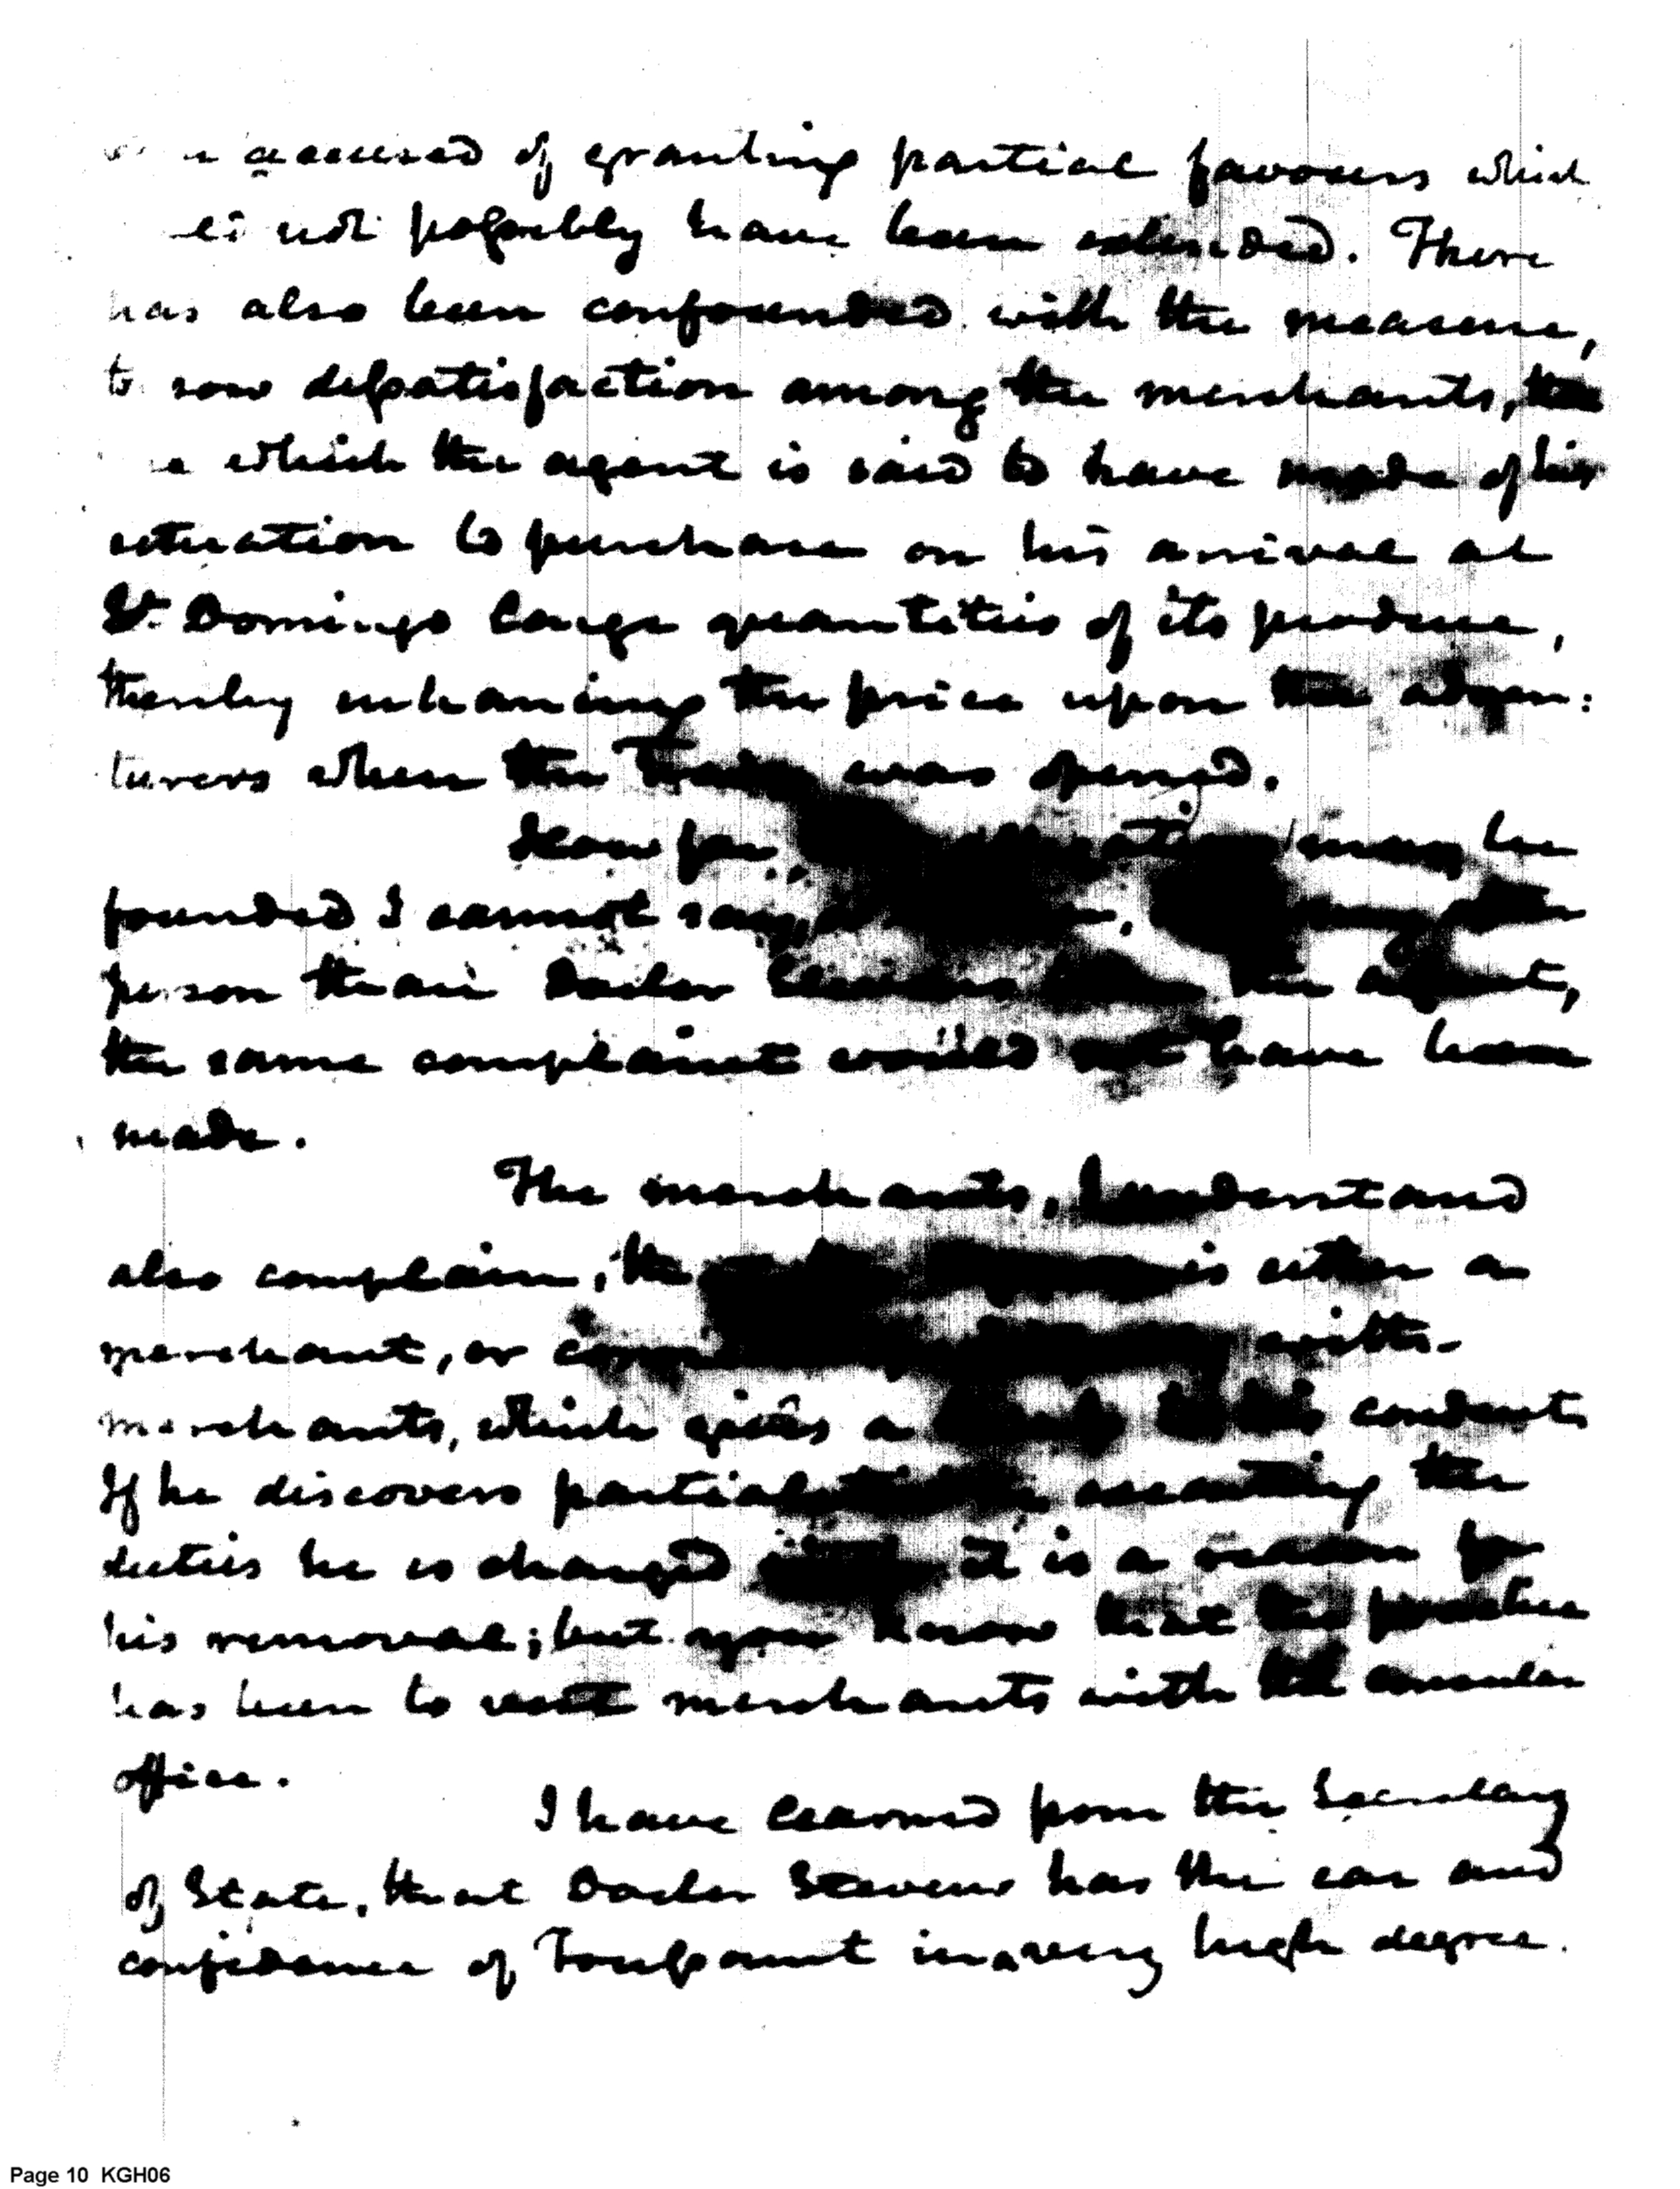 accused of granting partial favours which
not possibly have been extended. There
has also been confounded with the measure,
to sow dissatisfaction among the merchants, the
which the agent is said to have made of his
situation to purchase on his arrival at
St. Domingo large quantities of its produce,
thereby enhancing the price upon the adven:
turers when the Trade was opened.
How far may be
founded I cannot say, any other
person than Doctor Stevens been the agent,
the same complaint would not have been
made.
The merchants, I understand
also complain, the is either a
merchant, or with
merchants, which gives a to his conduct.
If he discovers partiality in executing the
duties he is charged with it is a reason for
his removal; but you know that the practice
has been to vest merchants with the consular
office.
I have learned from the Secretary
of State, that Doctor Stevens has the ear and
confidence of Toussaint in a very high degree.
Page 10 KGH06